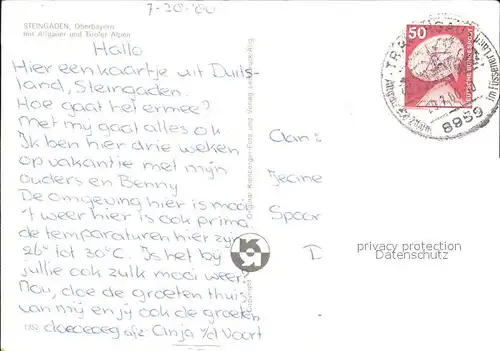 7-20-'80
STEINGADEN, Oberbayern
mit Allgäuer und Tiroler Alpen
Hallo
Hier een kaartje uit Duits-
land, Steingaden.
Hoe gaat het ermee?
Met my gaat alles ok
Ik ben hier drie weken
op vakantie met mijn
ouders en Benny
De omgeving hier is mooi
't weer hier is ook prima
de temperaturen hier zijn
26° tot 30°C. Is het bij
jullie ook zulk mooi weer?
Nou, doe de groeten thuis
van mij en jij ook de groeten
doeoeoeg afz. Anja v/d Voort
Aan:
Jeanne
Spoor
50
DEUTSCHE BUNDESPOST
8959
privacy protection
Datenschutz